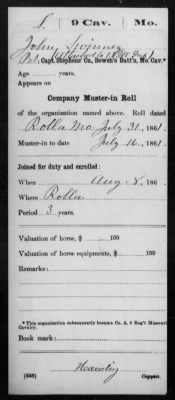 S. | 9 Cav. | Mo.
John
Pvt., Capt. Stephens' Co., Bowen's Batt'n, Mo. Cav.*
Age years.
Appears on
Company Muster-in Roll
of the organization named above. Roll dated
Rolla Mo. July 31, 1861.
Muster-in to date July 16, 1861.
Joined for duty and enrolled:
When Aug. 8, 186 .
Where Rolla
Period 3 years.
Valuation of horse, $ 100
Valuation of horse equipments, $ 100
Remarks:
* This organization subsequently became Co. A, 9 Reg't Missouri
Cavalry.
Book mark:
(356) Copyist.